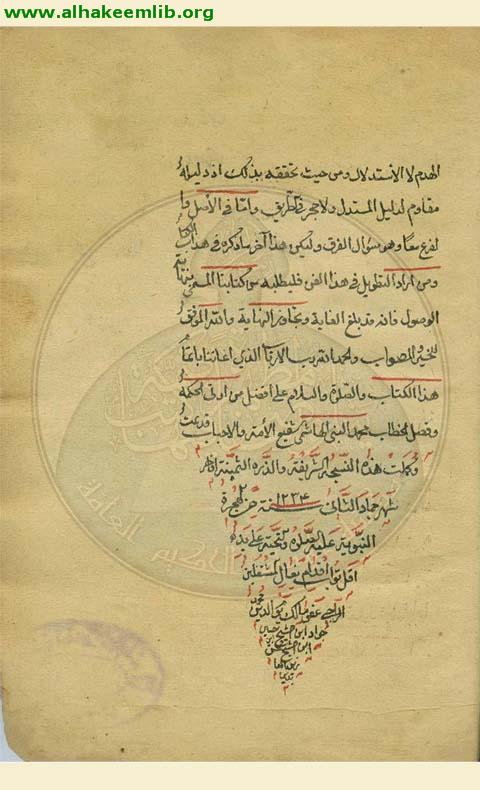 www.alhakeemlib.org
الهدم لا الاستدلال ومن حيث تحققه بذلك اذ دليله
مقاوم لدليل المستدل ولا حجر في الطريق واما في الأصل وا
لفرع معا وهو سؤال الفرق وليكن هذا آخر ما نذكره في هذا الكتاب
ومن اراد التطويل في هذا الفن فليطلبه من كتابنا المسمى بنهاية
الوصول فانه قد بلغ الغاية وتجاوز النهاية والله الموفق
للخير والصواب والحمد لله رب الأرباب الذي اعاننا باتمام
هذا الكتاب والصلوة والسلام على افضل من اوتي الحكمة
وفصل الخطاب محمد النبي الهاشمي شفيع الأمة والاحباب قد تمت
وكملت هذه النسخة الشريفة والدرة الثمينة
شهر جماد الثاني سنة ١٢٣٤ من الهجرة
النبوية عليه الصلوة والتحية على يد
اقل تراب اقدام نعال المشتغلين
الراجي عفو مالك
جواد ابن الشيخ
ابن الشيخ